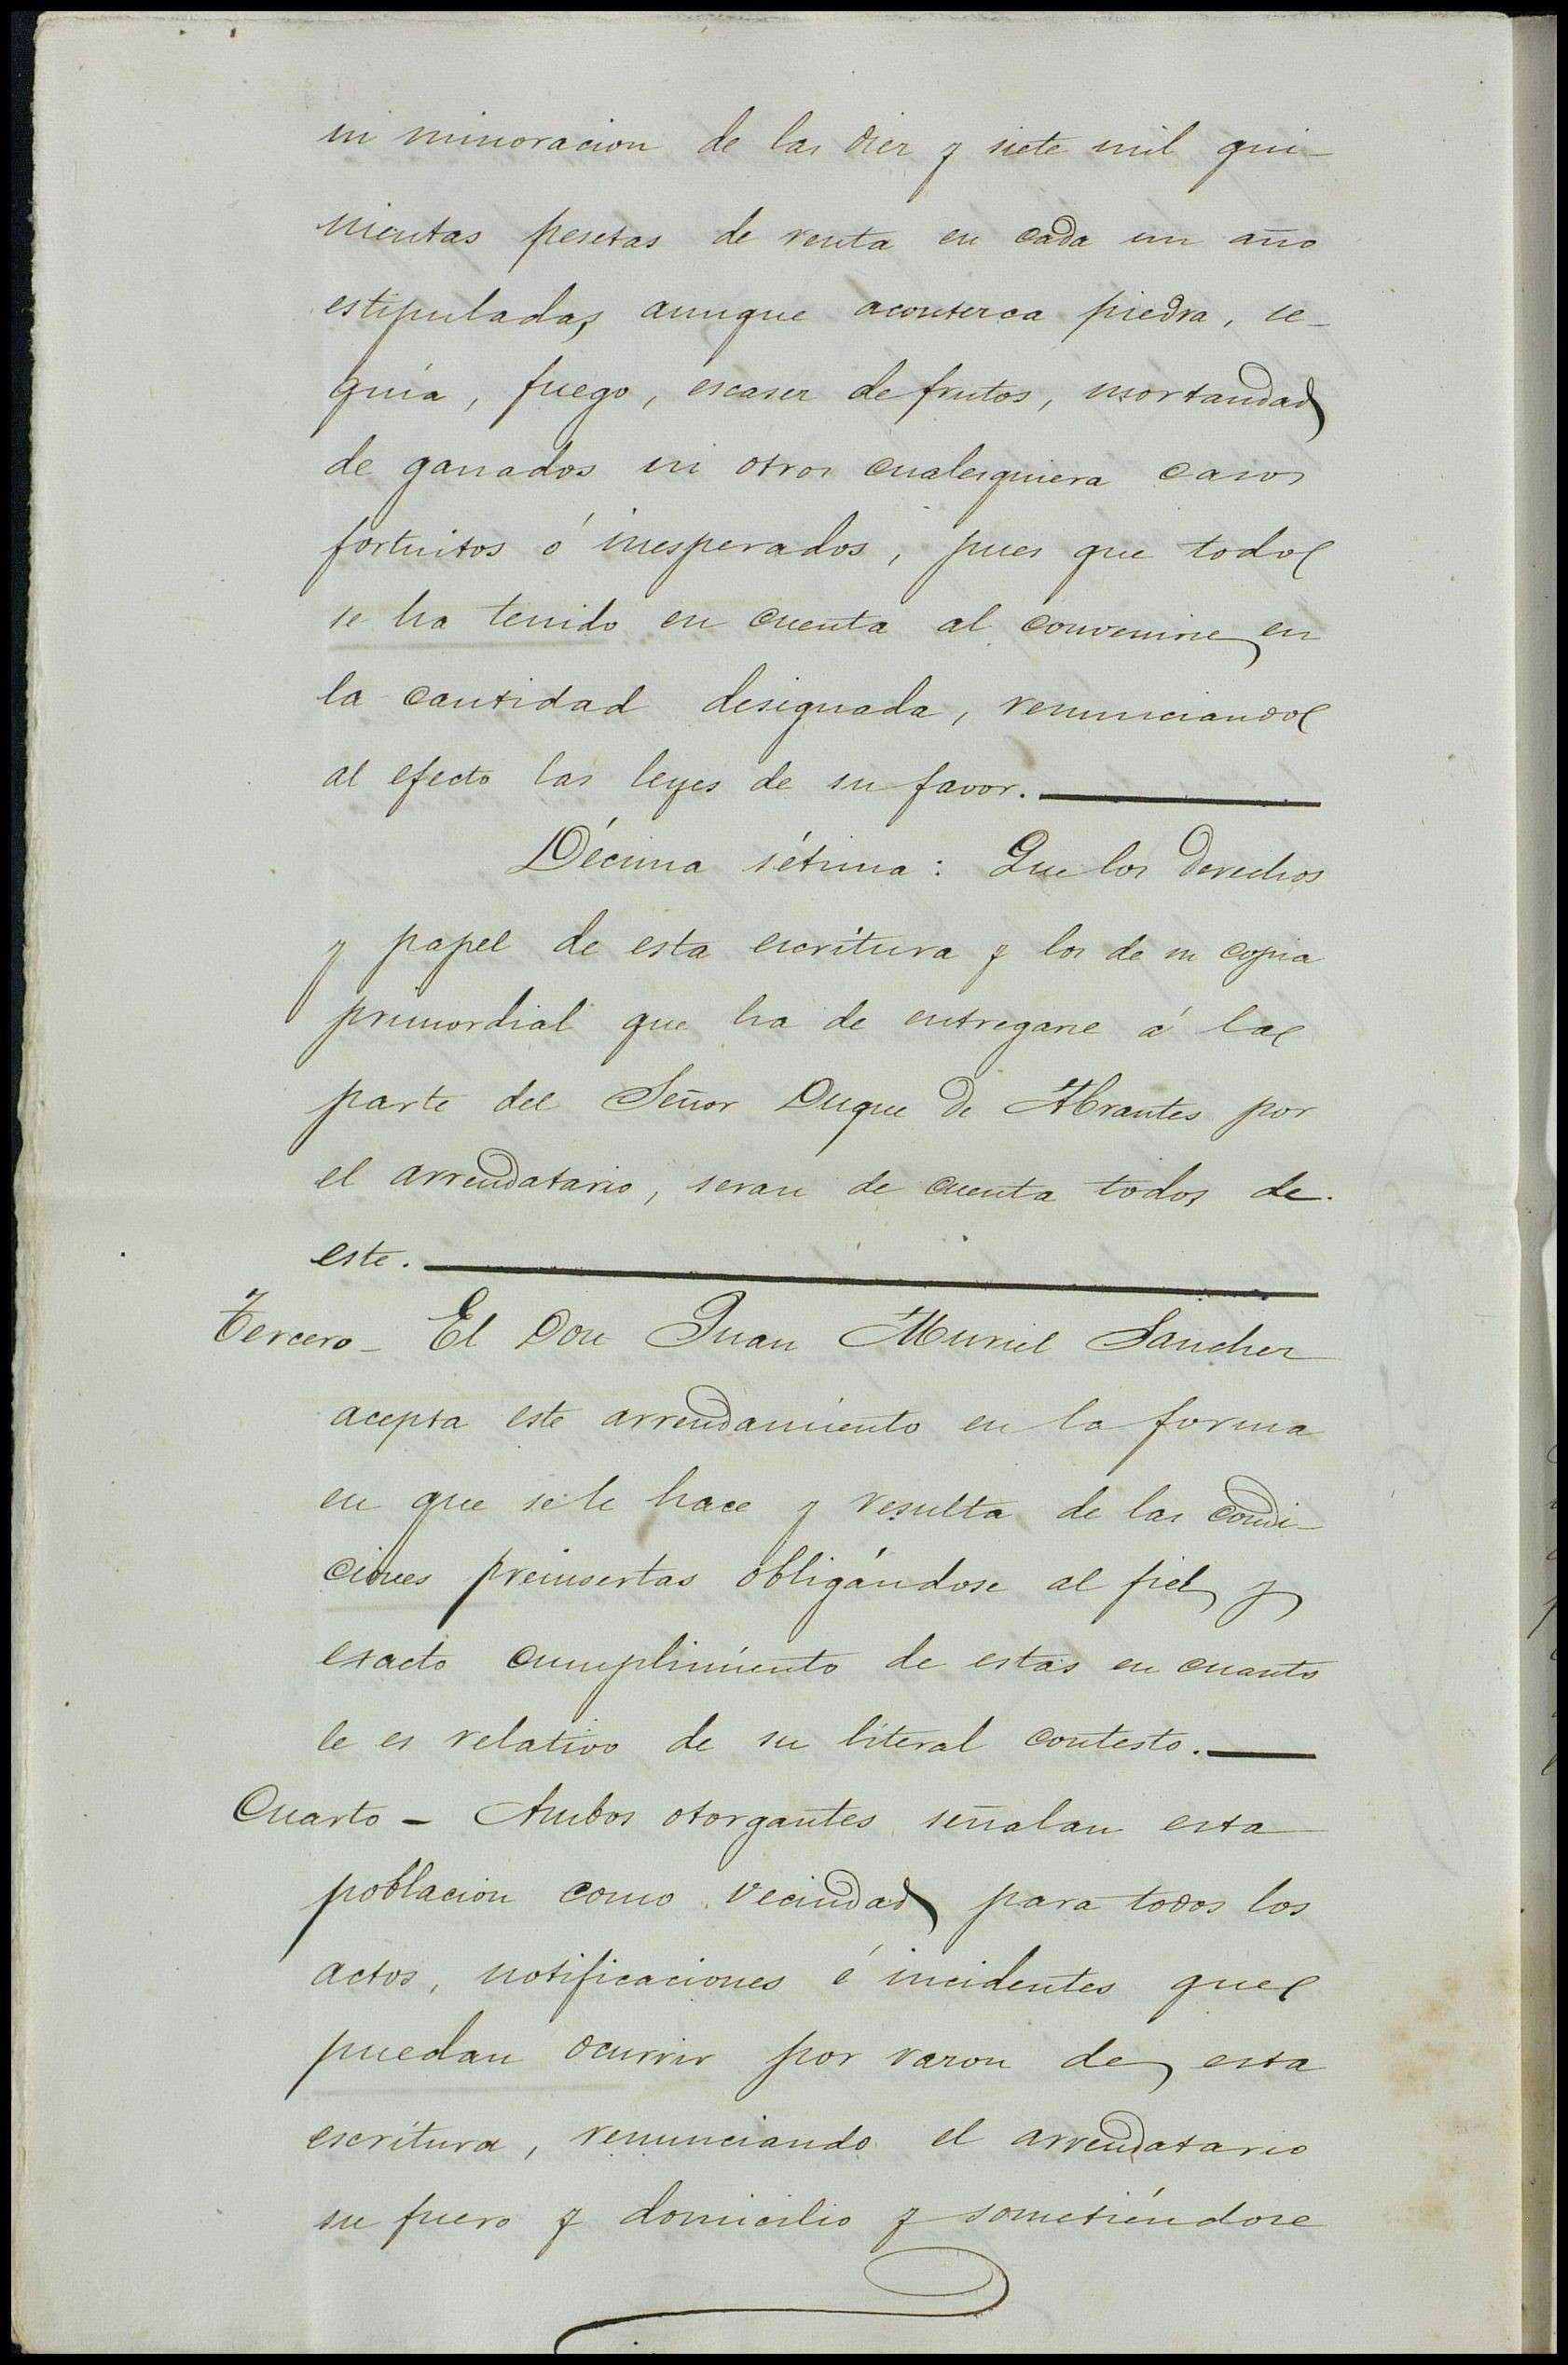 ni minoracion de las diez y siete mil qui-
nientas pesetas de renta en cada un año
estipuladas, aunque acontezca piedra, se-
quía, fuego, escasez de frutos, mortandad
de ganados ni otros cualesquiera casos
fortuitos ó inesperados, pues que todo
se ha tenido en cuenta al convenirse en
la cantidad designada, renunciando
al efecto las leyes de su favor.
Décima sétima: Que los derechos
y papel de esta escritura y los de su copia
primordial que ha de entregarse á la
parte del Señor Duque de Abrantes por
el arrendatario, seran de cuenta todos de
este.
Tercero - El Don Juan Muriel Sanchez
acepta este arrendamiento en la forma
en que se le hace y resulta de las condi-
ciones preinsertas obligándose al fiel y
exacto cumplimiento de estas en cuanto
le es relativo de su literal contesto.
Cuarto - Ambos otorgantes señalan esta
poblacion como vecindad para todos los
actos, notificaciones é incidentes que
puedan ocurrir por razon de esta
escritura, renunciando el arrendatario
su fuero y domicilio y sometiéndose